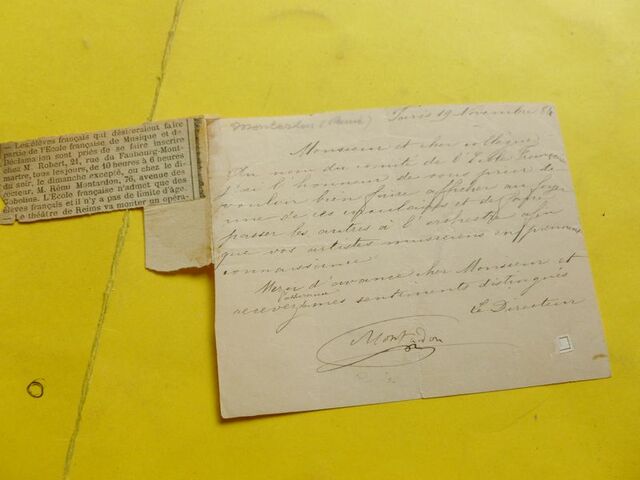 — Les élèves français qui désireraient faire
partie de l'Ecole française de Musique et de
Déclamation sont priés de se faire inscrire
chez M. Robert, 21, rue du Faubourg-Mont-
martre, tous les jours, de 10 heures à 6 heures
du soir, le dimanche excepté, ou chez le di-
recteur, M. Rémy Montardon, 76, avenue des
Gobelins. L'Ecole française n'admet que des
élèves français et il n'y a pas de limite d'âge.
— Le théâtre de Reims va monter un opéra-
Montardon (Remy)
Paris 19 Novembre 84
Monsieur et cher collègue
Au nom du comité de l'Ecole Française
j'ai l'honneur de vous prier de
vouloir bien faire afficher au foyer
une de ces et de faire
passer les autres à l'orchestre afin
que vos artistes musiciens en prennent
connaissance
Merci d'avance cher Monsieur et
l'assurance
recevez mes sentiments distingués
Le Directeur
Montardon